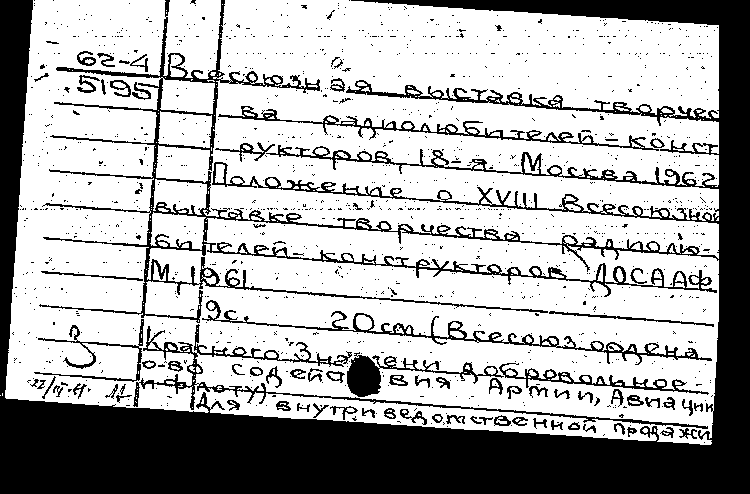 62-4 Всесоюзная выставка творчес
5195
ва радиолюбителей-конст
рукторов, 18-я. Москва 1962
Положение о XVIII Всесоюзной
выставке творчества радиолю-
бителей-конструкторов ДОСААФ
М., 1961.
9с. 20 см. (Всесоюз. ордена
Красного Знамени добровольное
о-во содейс вия Армии, Авиации
и флоту).
Для внутриведомственной продажи